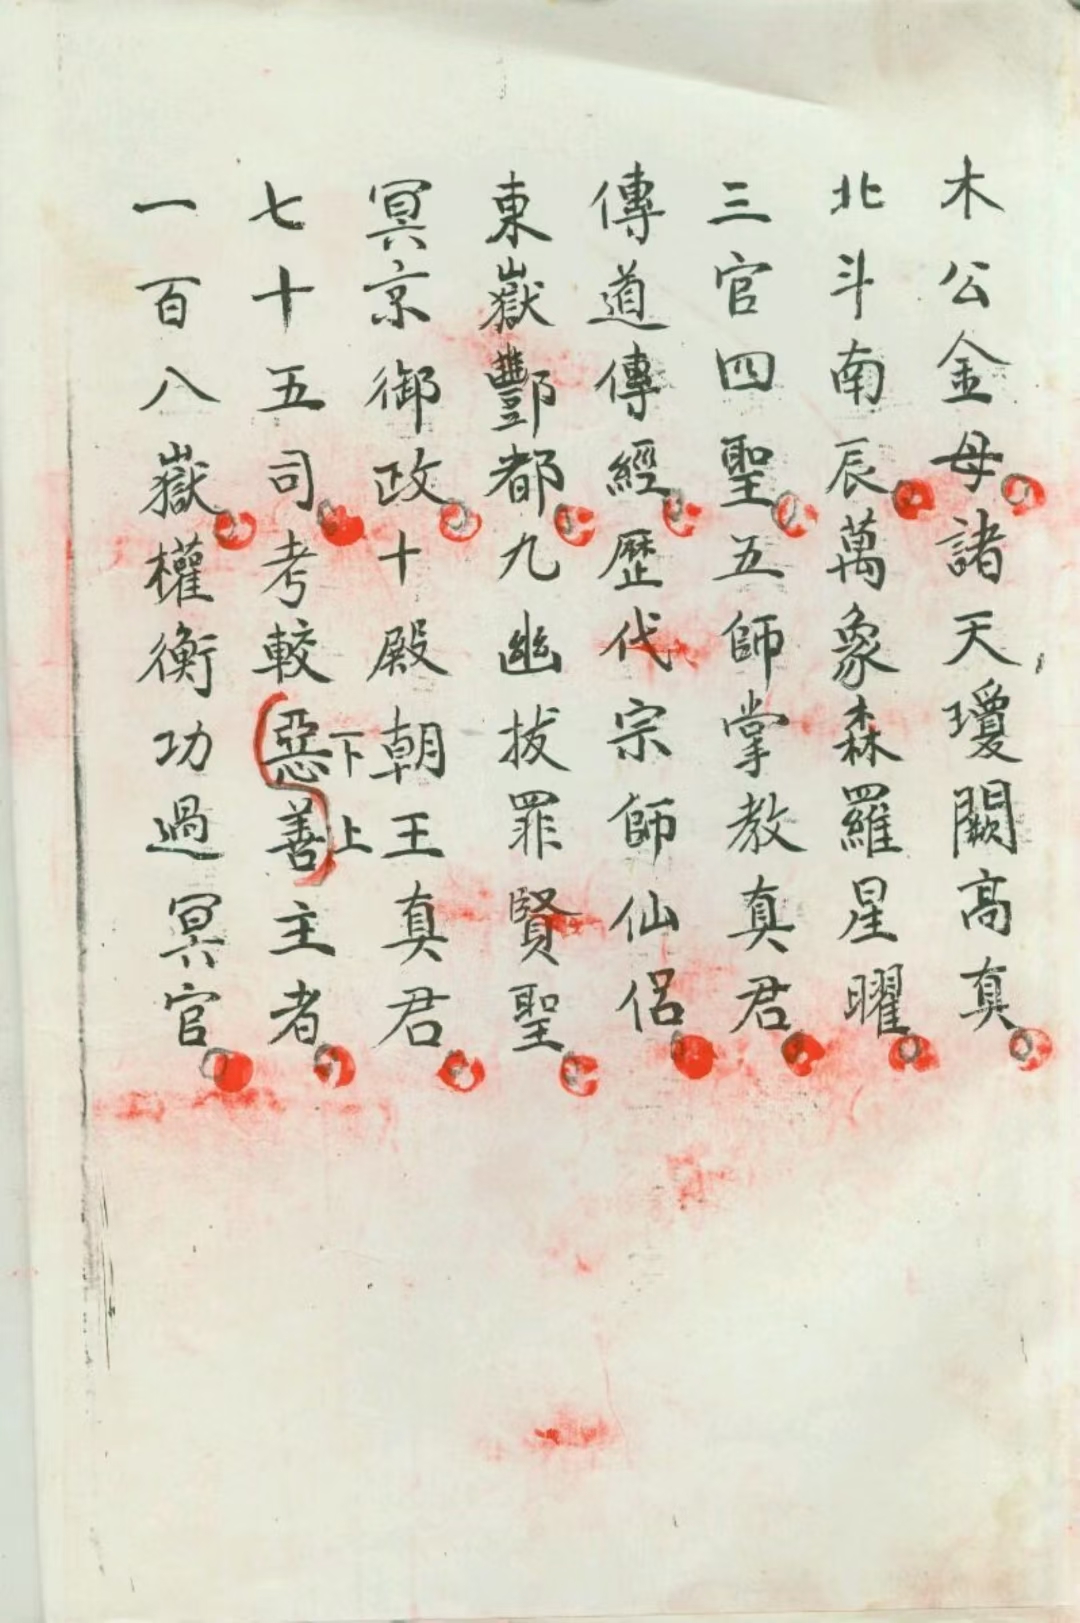 木公金母諸天瓊闕高真
北斗南辰萬象森羅星曜
三官四聖五師掌教真君
傳道傳經歷代宗師仙侶
東嶽酆都九幽拔罪賢聖
冥京御政十殿朝王真君
七十五司考較惡善主者
下上
一百八嶽權衡功過冥官